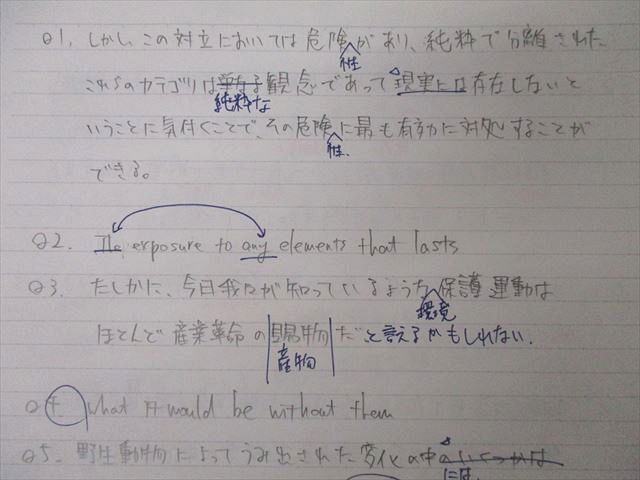 Q1. しかし、この対立においては危険があり、純粋で分離された
性
これらのカテゴリは単なる観念であって現実には存在しないと
純粋な
いうことに気付くことで、その危険に最も有効に対処することが
性.
できる。
Q2. The exposure to any elements that lasts
Q3. たしかに、今日我々が知っているような保護運動は
環境
ほとんど産業革命の賜物だと言えるかもしれない.
産物
Q4. What it would be without them
Q5. 野生動物によってうみ出された変化の中のいくつかは
には